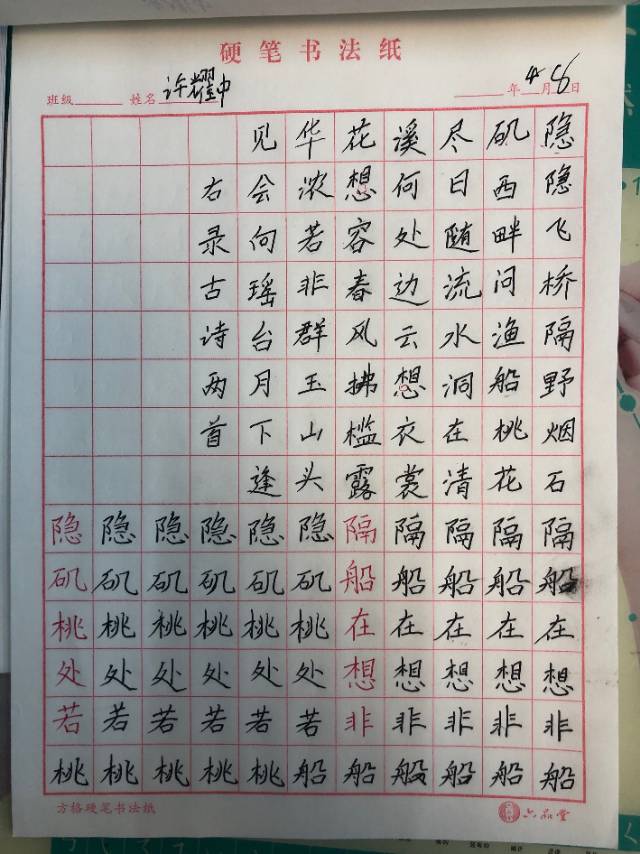 硬笔书法纸
班级 姓名 许耀中 年4月8日
隐隐飞桥隔野烟石
矶西畔问渔船桃花
尽日随流水洞在清
溪何处边云想衣裳
花想容春风拂槛露
华浓若非群玉山头
见会向瑶台月下逢
右录古诗两首
隐隐隐隐隐隐隔隔隔隔隔
矶矶矶矶矶矶船船船船船
桃桃桃桃桃桃在在在在在
处处处处处处想想想想想
若若若若若若非非非非非
桃桃桃桃桃船船船船船船
方格硬笔书法纸 六品堂